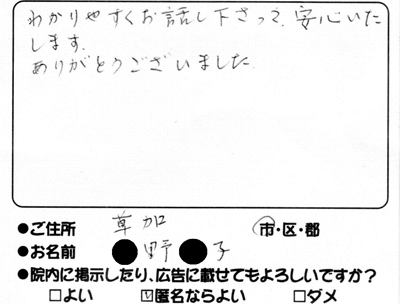 わかりやすくお話し下さって、安心いた
します。
ありがとうございました。
●ご住所 草加 市・区・郡
●お名前 ●野●子
●院内に掲示したり、広告に載せてもよろしいですか?
□よい ☑匿名ならよい □ダメ